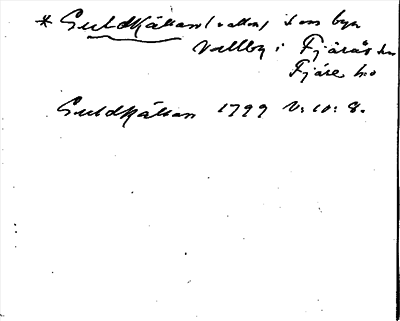 * Guldkällan (vatten) i om byn
Vallby i Fjärås sn
Fjäre hd
Guldkällan 1799 V: 10: 8.